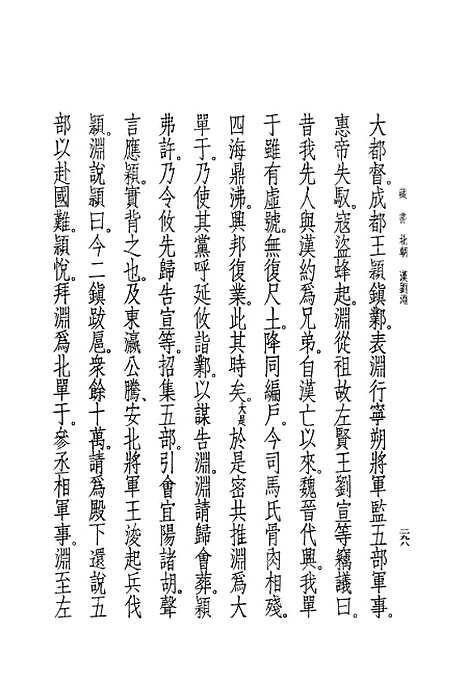 藏書 北朝 漢劉淵
大都督。成都王穎鎮鄴。表淵行寧朔將軍監五部軍事。
惠帝失馭。寇盜蜂起。淵從祖故左賢王劉宣等竊議曰。
昔我先人與漢約爲兄弟。自漢亡以來。魏晉代興。我單
于雖有虛號。無復尺土。降同編戶。今司馬氏骨肉相殘。
四海鼎沸。興邦復業。此其時矣。大是於是密共推淵爲大
單于。乃使其黨呼延攸詣鄴。以謀告淵。淵請歸會葬。穎
弗許。乃令攸先歸告宣等。招集五部。引會宜陽諸胡。聲
言應穎。實背之也。及東瀛公騰、安北將軍王浚起兵伐
穎。淵說穎曰。今二鎮跋扈。衆餘十萬。請爲殿下還說五
部以赴國難。穎悅。拜淵爲北單于。參丞相軍事。淵至左
二六八